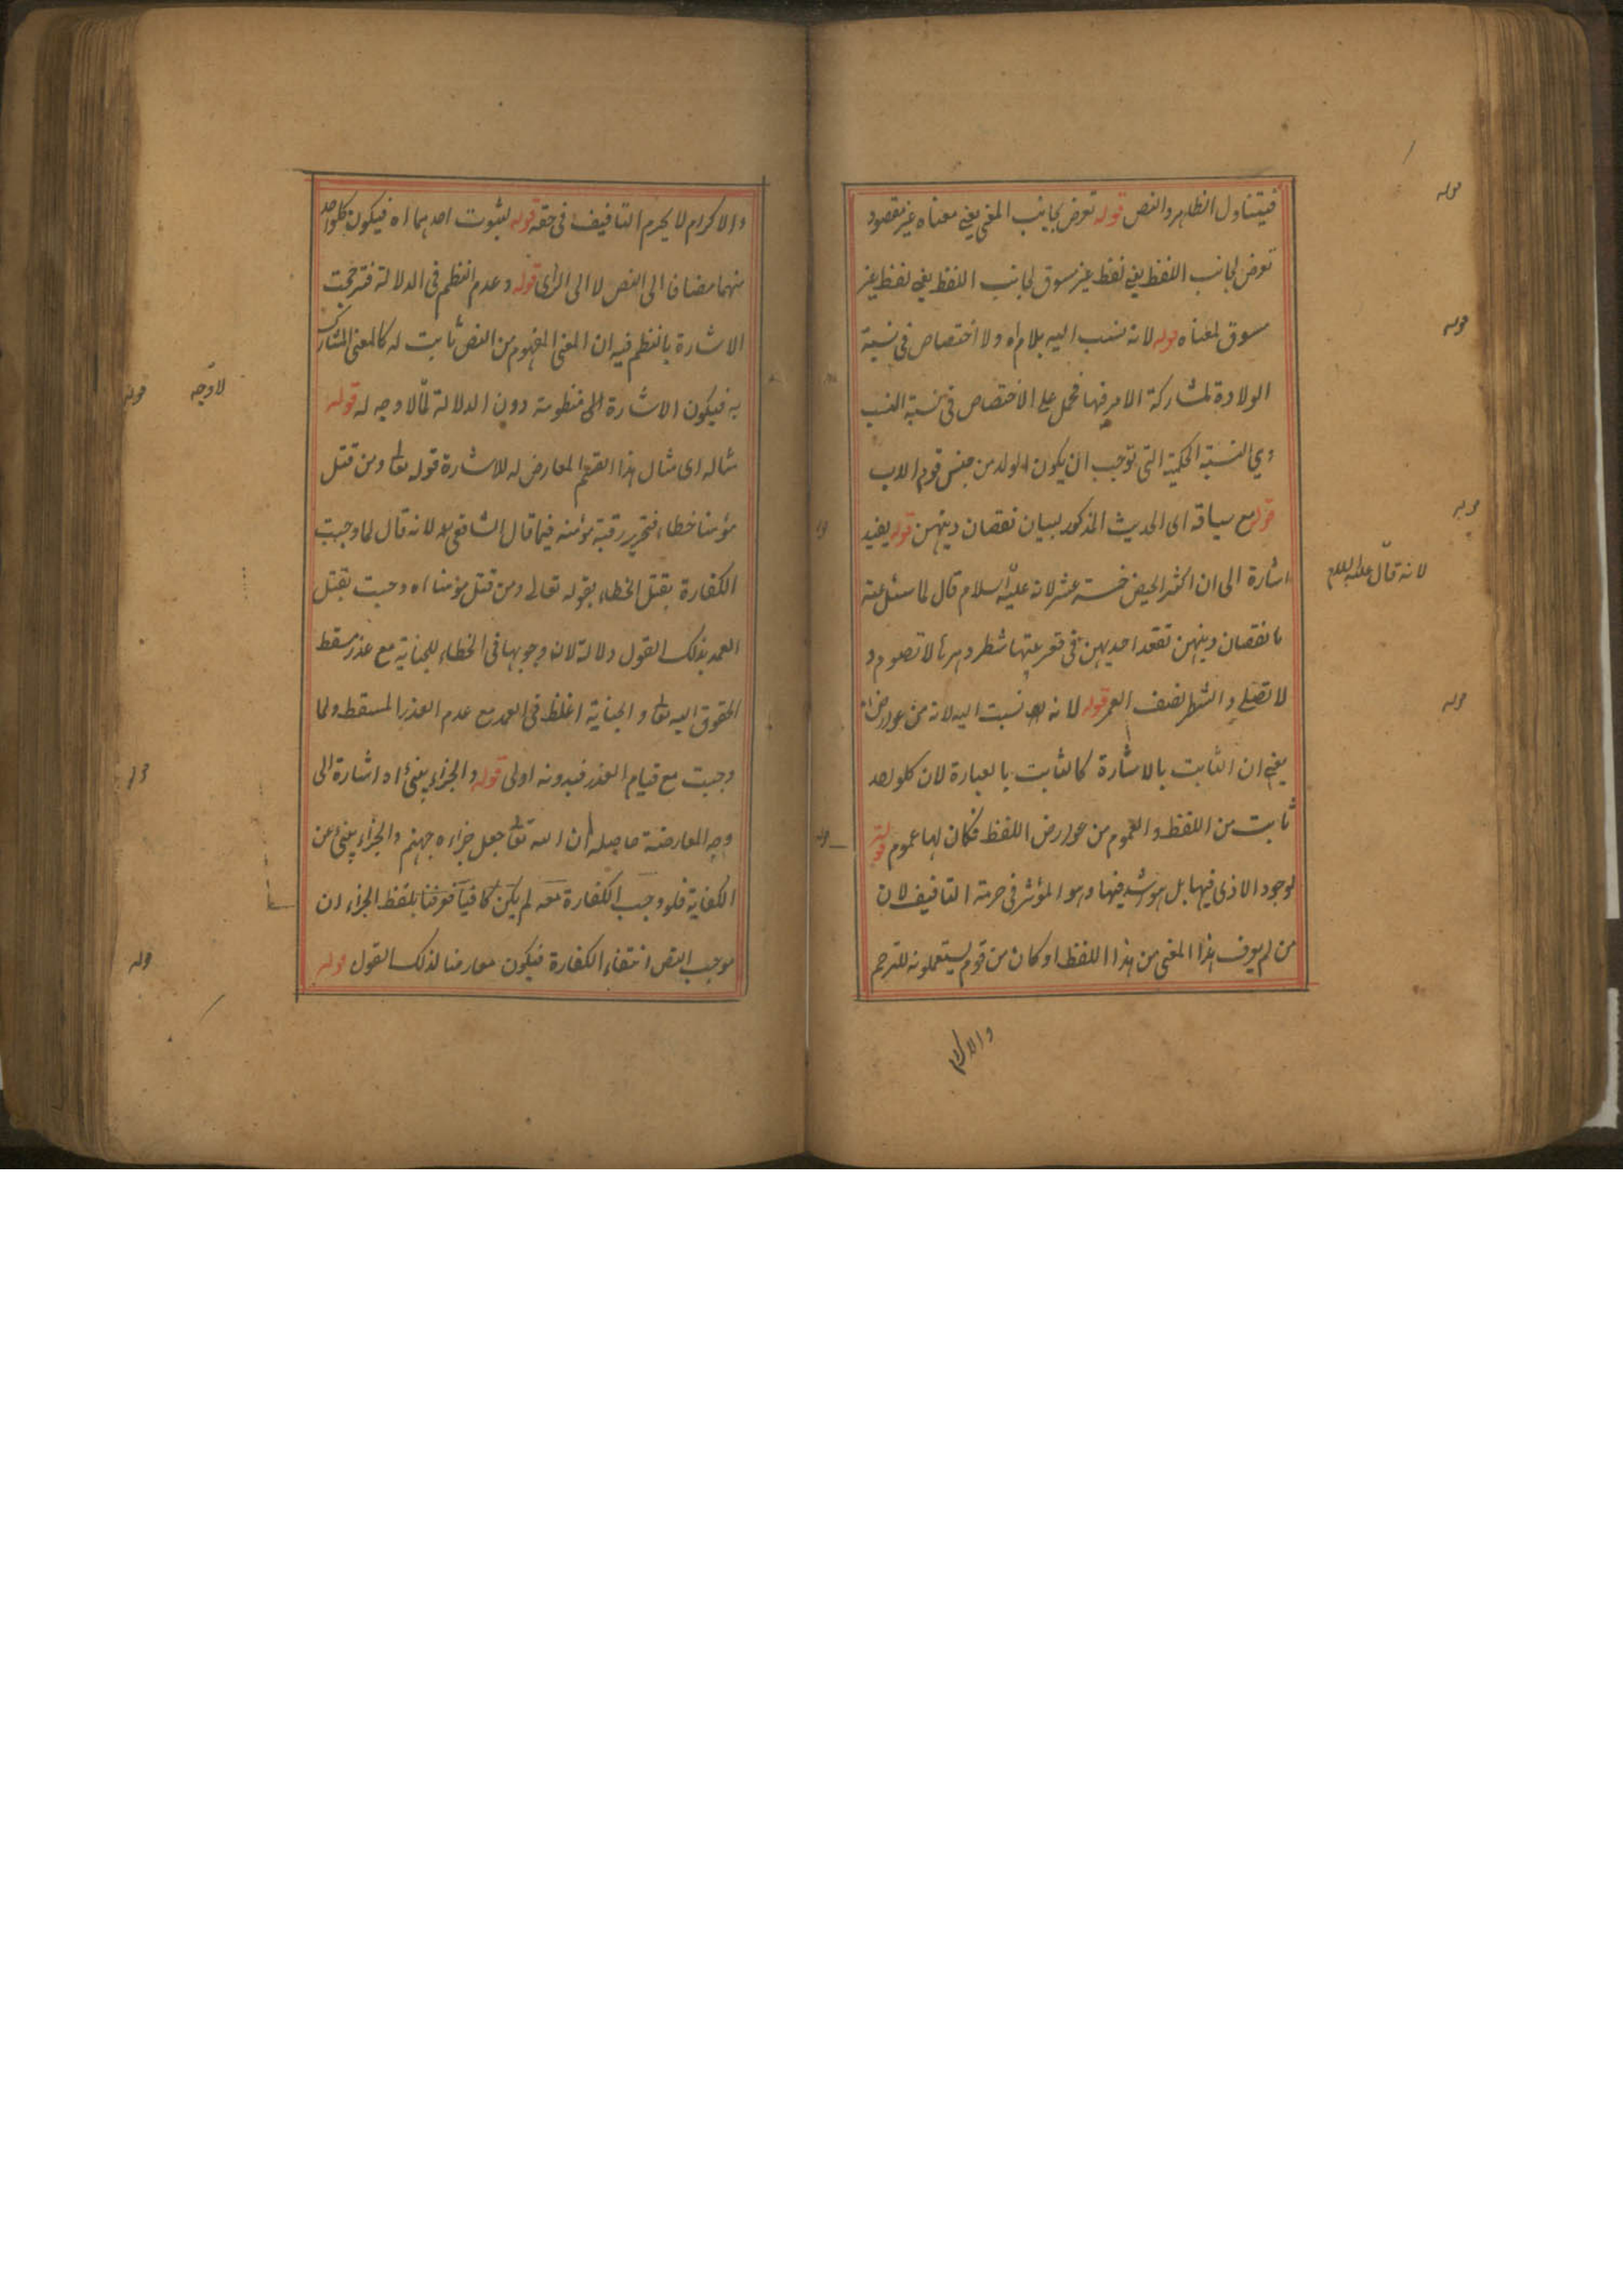 فيتناول الظاهر والنص قوله تعرض لجانب المعنى يعني معناه غير مقصود
تعرض لجانب اللفظ يعني لفظ غير مسوق لجانب اللفظ يعني لفظ غير
مسوق لمعناه قوله لانه نسب اليه بلام اه ولا اختصاص في نسبة
الولادة لمشاركة الام فيها فحمل على الاختصاص في نسبة النسب
وهي النسبة الحكمية التي توجب ان يكون الولد من جنس قوم الاب
قوله مع سياقه اى الحديث المذكور لبيان نقصان دينهن قوله يفيد
اشارة الى ان اكثر الحيض خمسة عشر لانه عليه السلام قال لما سئل عنه
ما نقصان دينهن تقعد احديهن في قعر بيتها شطر دهرها لا تصوم و
لا تصلى والشطر نصف العمر قوله لانه نسبت اليه لانه من عوارض
يعني ان الثابت بالاشارة كالثابت بالعبارة لان كلواحد
ثابت من اللفظ والعموم من عوارض اللفظ فكان لها عموم قوله
لوجود الاذى فيها بل هو اشد فيها وهو المؤثر في حرمة التافيف لان
من لم يعرف هذا المعنى من هذا اللفظ او كان من قوم يستعملونه للترحم
والاكرام
قوله
قوله
قوله
لانه قال عليه السلام
قوله
والاكرام لا يحرم التافيف في حقه قوله لثبوت احدهما اه فيكون كلواحد
منهما مضافا الى النص لا الى الراى قوله وعدم النظم في الدلالة فترجحت
الاشارة بالنظم فيه ان المعنى المفهوم من النص ثابت له كالمعنى المشارك
به فيكون الاشارة الى منظومة دون الدلالة لما لا وجه له قوله
مثاله اى مثال هذا القسم المعارض له للاشارة قوله تعالى ومن قتل
مؤمنا خطاء فتحرير رقبة مؤمنة فيما قال الشافعى لانه قال لما وجبت
الكفارة بقتل الخطاء بقوله تعالى ومن قتل مؤمنا اه وجبت بقتل
العمد بذلك القول دلالة لان وجوبها في الخطاء للجناية مع عذر مسقط
الحقوق اليه تعالى والجناية اغلظ في العمد مع عدم العذر المسقط ولما
وجبت مع قيام العذر فبدونه اولى قوله والجزاء ينبئ اه اشارة الى
وجه المعارضة حاصله ان الله تعالى جعل جزاءه جهنم والجزاء ينبئ عن
الكفاية فلو وجب الكفارة معه لم يكن كافيا فعرفنا بلفظ الجزاء ان
موجب النص انتفاء الكفارة فيكون معارضا لذلك القول قوله
لا وجه
قوله
قوله